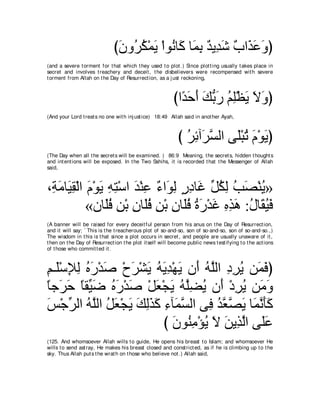 (وَعَذَابٌ شَدِيدٌ بِمَا كَانُواْ يَمْكُرُونَ)
(and a severe torment for that which they used to plot.) Since plotting usually takes place in
secret and involves treachery and deceit, the disbelievers were recompensed with severe
torment from Allah on the Day of Resurrection, as a just reckoning,
(وَلاَ يَظْلِمُ رَبُّكَ أَحَدًا)
(And your Lord treats no one with injustice) 18:49 Allah said in another Ayah,
(يَوْمَ تُبْلَى السَّرَآئِرُ )
(The Day when all the secrets will be examined.) 86:9 Meaning, the secrets, hidden thoughts
and intentions will be exposed. In the Two Sahihs, it is recorded that the Messenger of Allah
said,
«يُنْصَبُ لِكُلِّ غَادِرٍ لِوَاءٌ عِنْدَ اسْتِهِ يَوْمَ الْقِيَامَةِ،
فَيُقَالُ: هَذِهِ غَدْرَةُ فُلَانِ بْنِ فُلَانِ بْنِ فُلَان»
(A banner will be raised for every deceitful person from his anus on the Day of Resurrection,
and it will say; ``This is the treacherous plot of so-and-so, son of so-and-so, son of so-and-so.,)
The wisdom in this is that since a plot occurs in secret, and people are usually unaware of it,
then on the Day of Resurrection the plot itself will become public news testifying to the actions
of those who committed it.
(فَمَن يُرِدِ اللَّهُ أَن يَهْدِيَهُ يَشْرَحْ صَدْرَهُ لِلإِسْلَـمِ
وَمَن يُرِدْ أَن يُضِلَّهُ يَجْعَلْ صَدْرَهُ ضَيِّقاً حَرَجاً
كَأَنَّمَا يَصَّعَّدُ فِى السَّمَآءِ كَذَلِكَ يَجْعَلُ اللَّهُ الرِّجْسَ
عَلَى الَّذِينَ لاَ يُؤْمِنُونَ )
(125. And whomsoever Allah wills to guide, He opens his breast to Islam; and whomsoever He
wills to send astray, He makes his breast closed and constricted, as if he is climbing up to the
sky. Thus Allah puts the wrath on those who believe not.) Allah said,